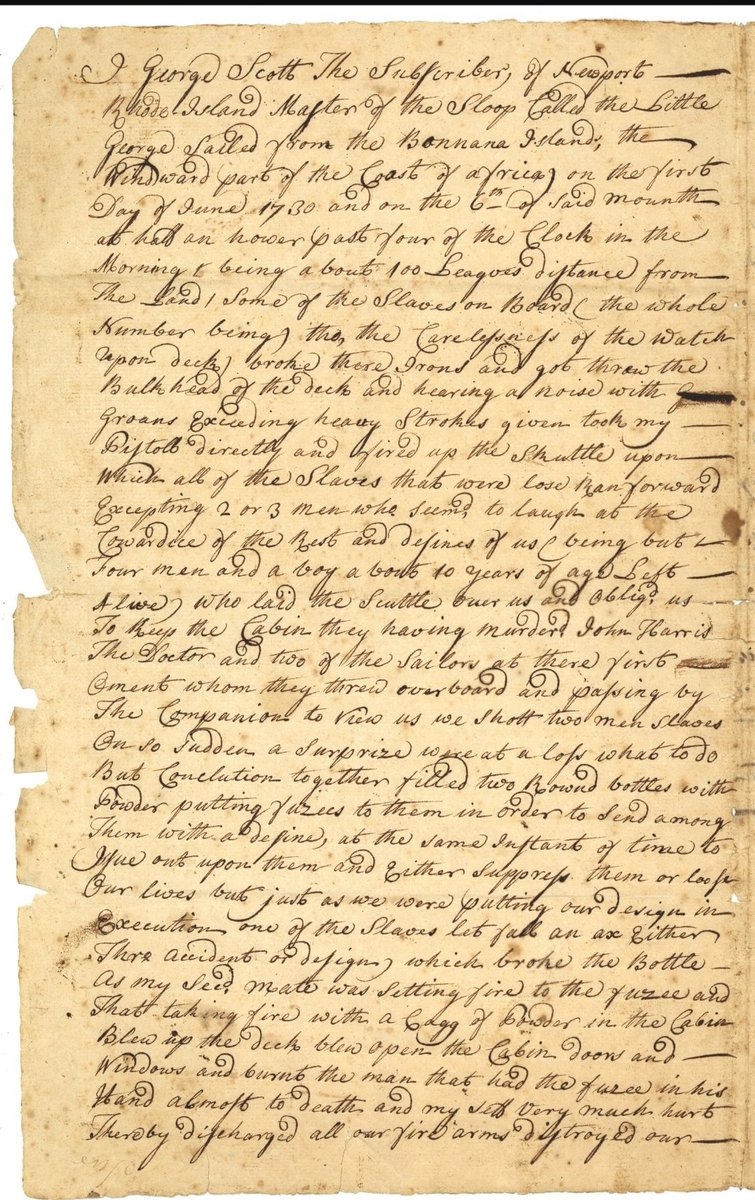 I George Scott The Subscriber, of Newport
Rhode Island Master of the Sloop Called the Little
George Sailed from the Bonnana Islands, the
Windward part of the Coast of africa) on the first
Day of June 1730 and on the 6th of said mounth
at half an hower past four of the Clock in the
Morning (being about 100 Leagues distance from
The Land) Some of the Slaves on Board (the whole
Number being) thro, the Carelessness of the Watch
upon deck) broke there Irons and got threw the
Bulkhead of the deck and hearing a noise with
Groans Exceding heavy Strokes given took my
Pistoll directly and fired up the Skuttle upon
Which all of the Slaves that were lose Ran forward
Excepting 2 or 3 men who seemd to laugh at the
Cowardice of the Rest and defines of us (being but
Four men and a boy about 10 years of age Left
Alive) who laid the Scuttle over us and Obligd us
To Keep the Cabin they having murderd John Harris
The Doctor and two of the Sailors at there first
Oment whom they threw overboard and passing by
The Companion to view us we Shott two men Slaves
On so sudden a Surprize were at a loss what to do
But Conclution together filled two Rownd bottles with
Powder putting fuzees to them in order to Send among
Them with a desine, at the same Instant of time to
Isue out upon them and Either Suppress them or loose
Our lives but just as we were putting our design in
Execution one of the Slaves let fall an ax Either
Thro accident or design) which broke the Bottle
As my Secd mate was Setting fire to the fuzee and
That taking fire with a Cagg of Powder in the Cabin
Blew up the deck blew open the Cabin doors and
Windows and burnt the man that had the fuzee in his
Hand almost to death and my self very much hurt
Thereby discharged all our fire arms distroyed our